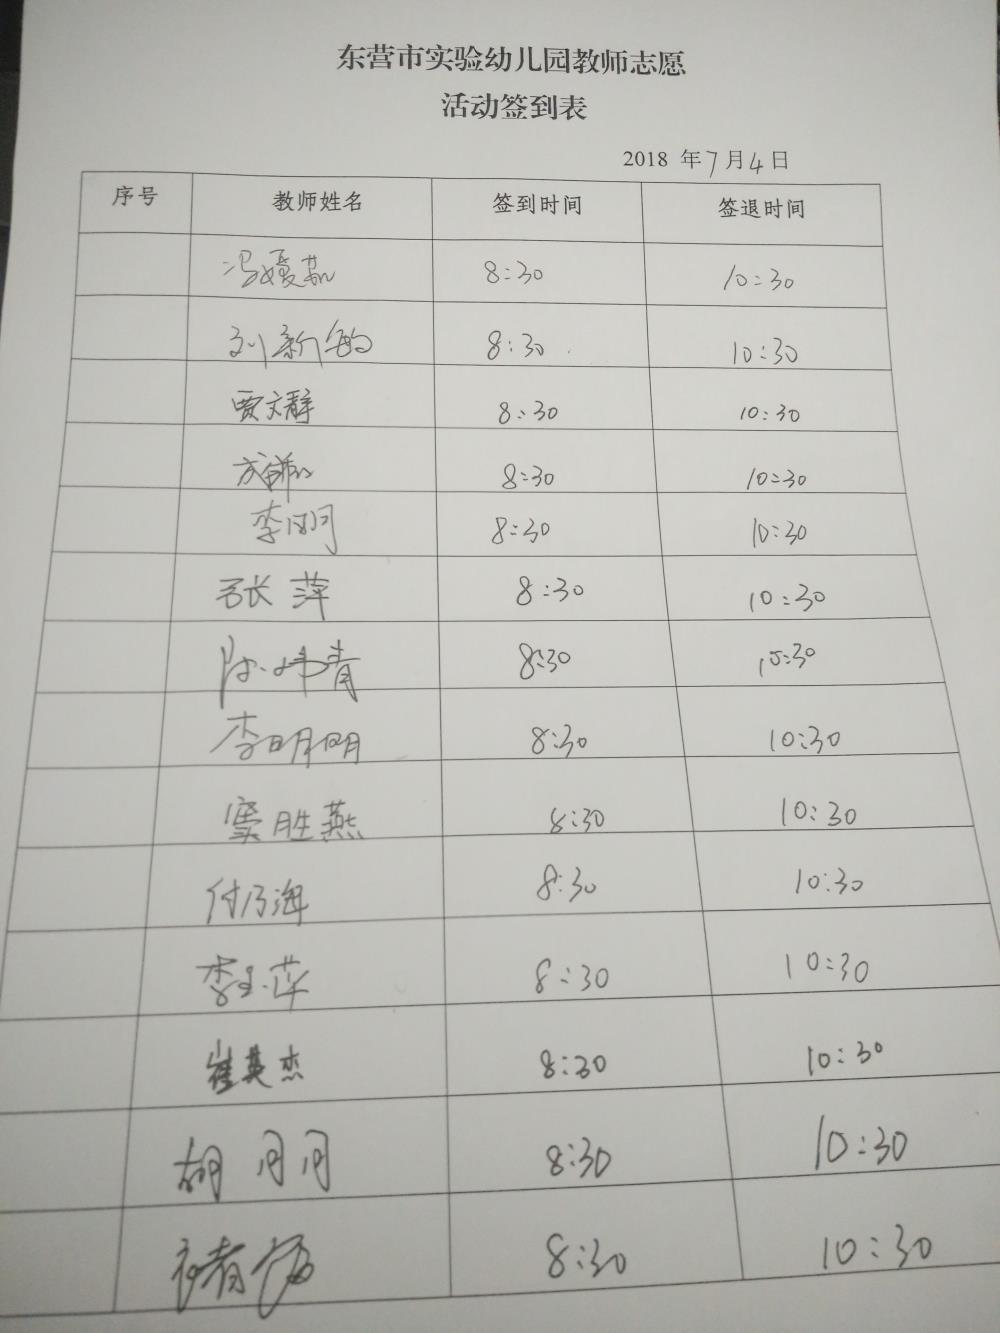 东营市实验幼儿园教师志愿
活动签到表
2018 年7月4日
序号 教师姓名 签到时间 签退时间
冯媛茹 8:30 10:30
刘新敏 8:30 10:30
贾文静 8:30 10:30
8:30 10:30
李 8:30 10:30
张萍 8:30 10:30
陈 青 8:30 10:30
李明明 8:30 10:30
窦胜燕 8:30 10:30
付乃海 8:30 10:30
李玉萍 8:30 10:30
崔英杰 8:30 10:30
胡月月 8:30 10:30
8:30 10:30